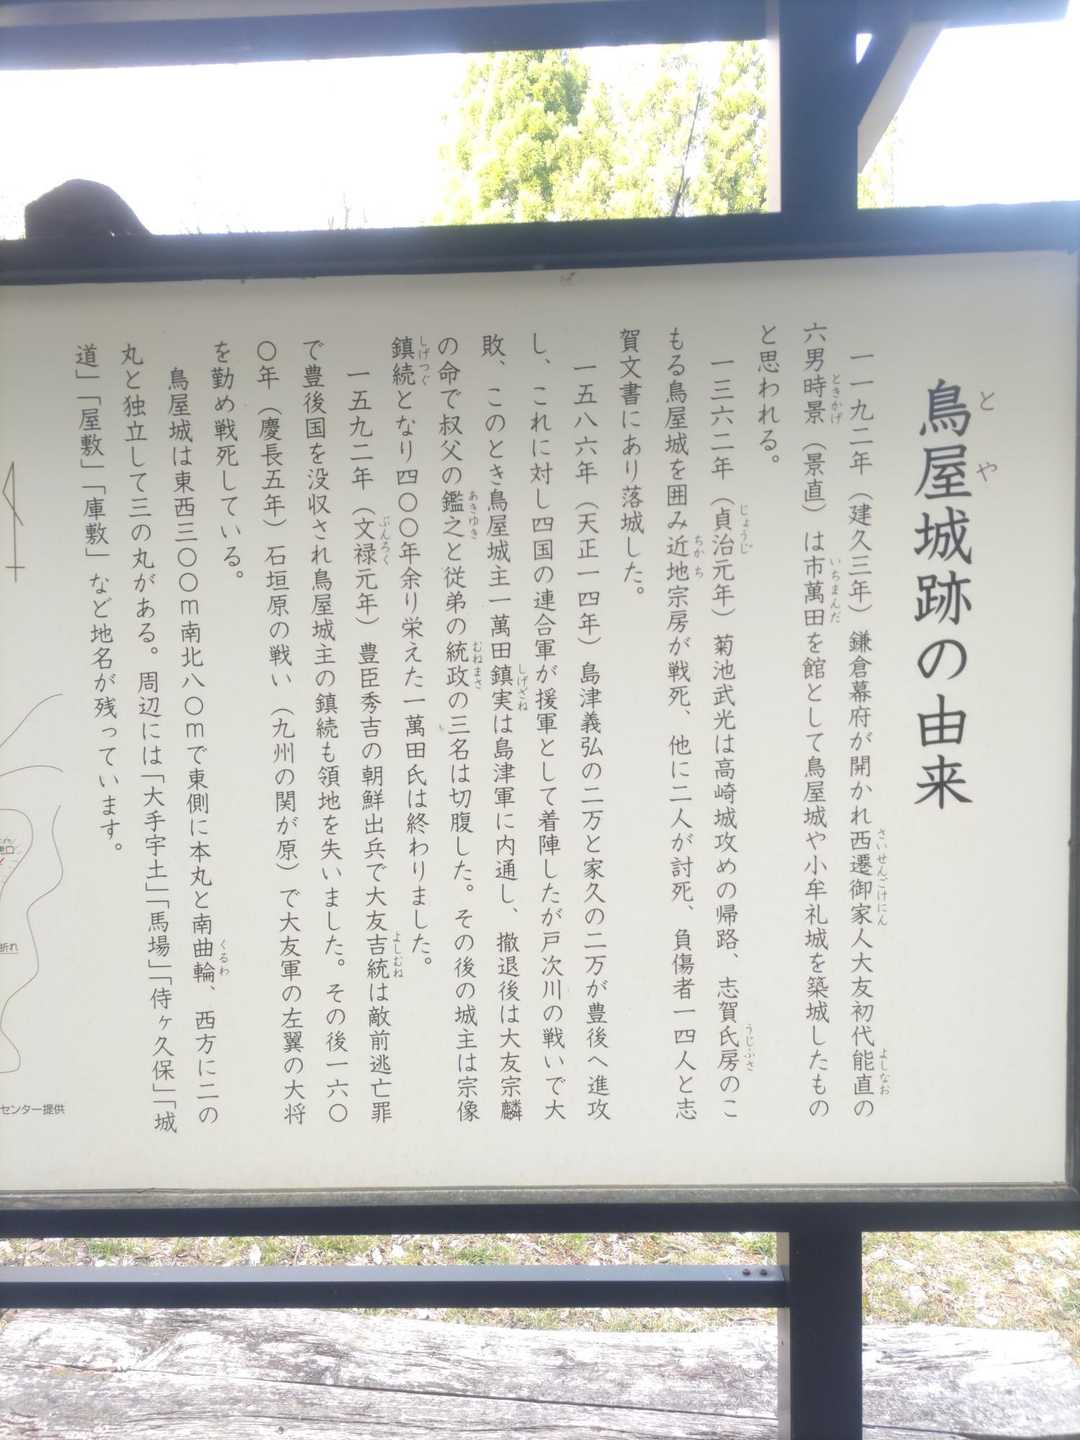 鳥屋城跡の由来
とや
一一九二年（建久三年）鎌倉幕府が開かれ西遷御家人大友初代能直の
さいせんごけにん
よしなお
六男時景（景直）は市萬田を館として鳥屋城や小牟礼城を築城したもの
ときかげ
いちまんだ
と思われる。
一三六二年（貞治元年）菊池武光は高崎城攻めの帰路、志賀氏房のこ
じょうじ
うじふさ
もる鳥屋城を囲み近地宗房が戦死、他に二人が討死、負傷者一四人と志
ちかち
賀文書にあり落城した。
一五八六年（天正一四年）島津義弘の二万と家久の二万が豊後へ進攻
し、これに対し四国の連合軍が援軍として着陣したが戸次川の戦いで大
敗、このとき鳥屋城主一萬田鎮実は島津軍に内通し、撤退後は大友宗麟
しげざね
の命で叔父の鑑之と従弟の統政の三名は切腹した。その後の城主は宗像
あきゆき
むねまさ
鎮続となり四〇〇年余り栄えた一萬田氏は終わりました。
しげつぐ
一五九二年（文禄元年）豊臣秀吉の朝鮮出兵で大友吉統は敵前逃亡罪
ぶんろく
よしむね
で豊後国を没収され鳥屋城主の鎮続も領地を失いました。その後一六〇
〇年（慶長五年）石垣原の戦い（九州の関が原）で大友軍の左翼の大将
を勤め戦死している。
鳥屋城は東西三〇〇ｍ南北八〇ｍで東側に本丸と南曲輪、西方に二の
くるわ
丸と独立して三の丸がある。周辺には「大手宇土」「馬場」「侍ヶ久保」「城
道」「屋敷」「庫敷」など地名が残っています。
折れ
センター提供